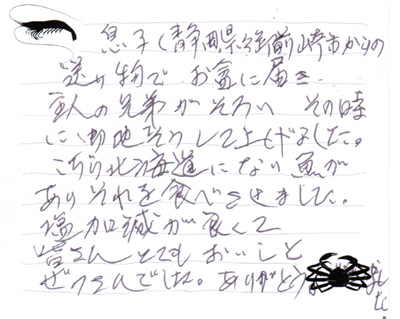 息子(静岡県御前崎市からの
送り物で お盆に届き
主人の兄弟がそろい その時
に 地 そりして上げました。
こちら北海道にない魚が
ありそれを食べさせました。
塩加減が良くて
皆さんとてもおいしと
ぜっさんでした。ありがとう ました